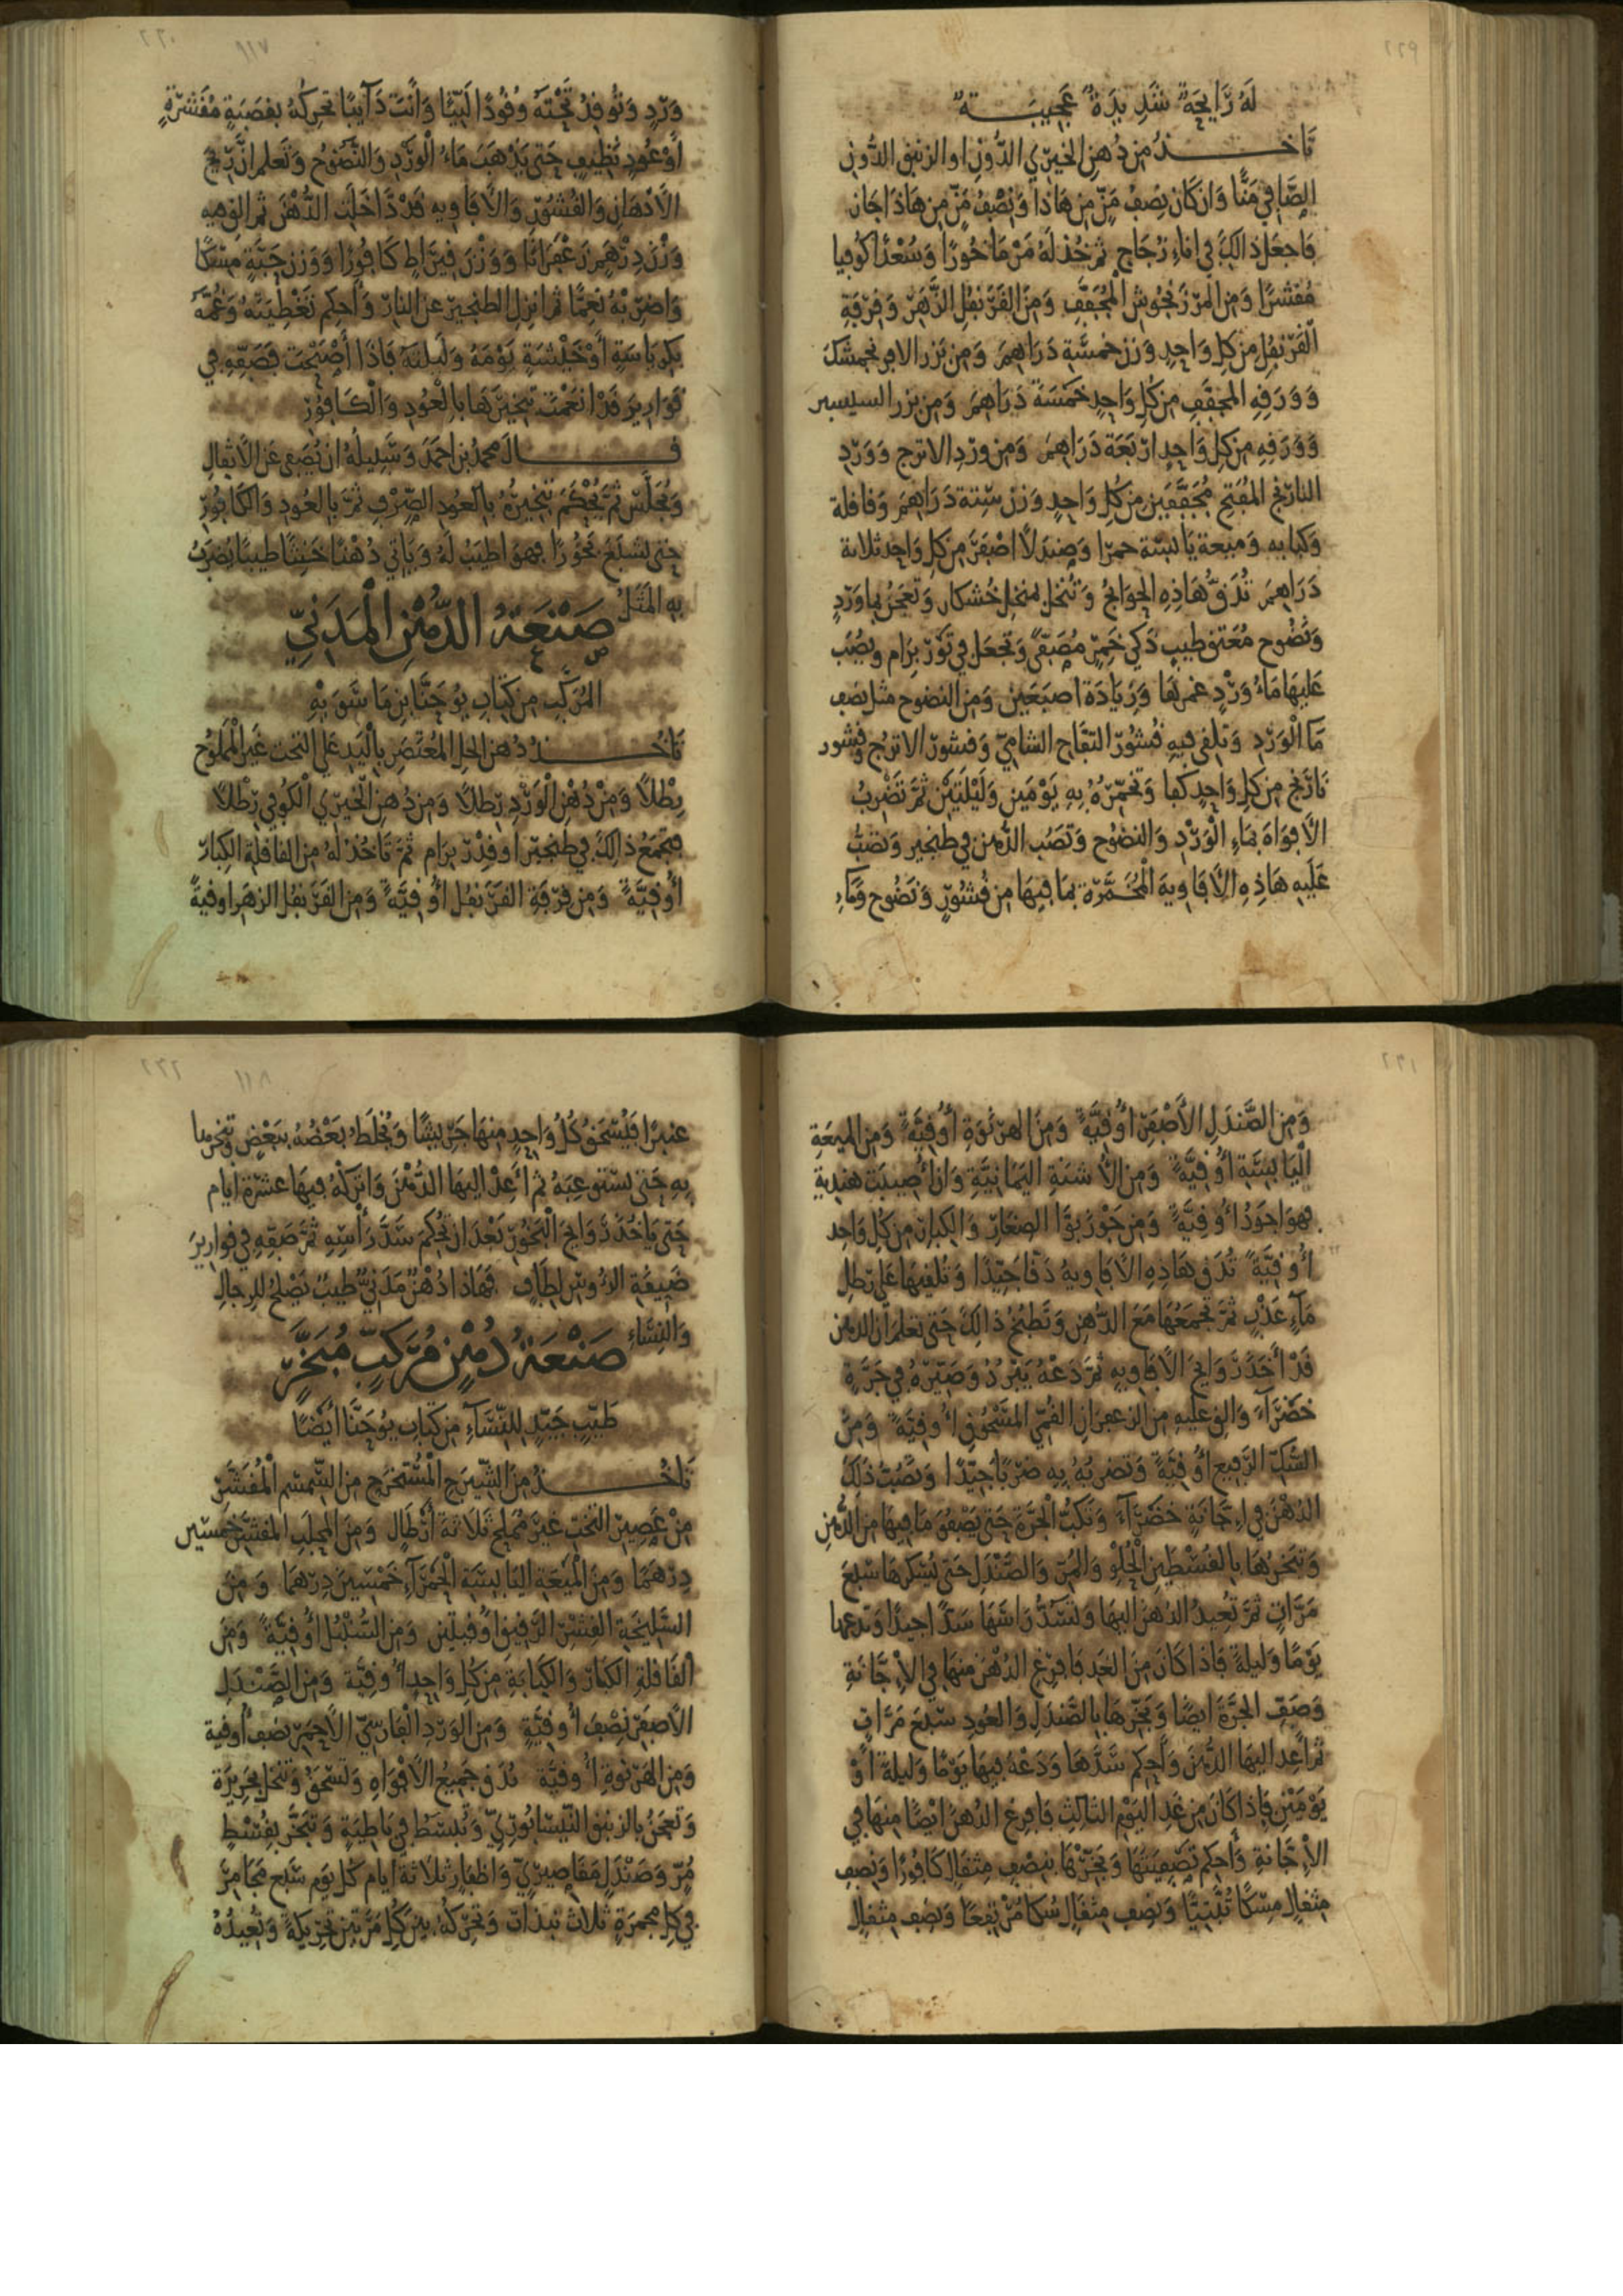 ٢٢٩
لَهُ رَايِحَةٌ شَدِيدَةٌ عَجِيبَةٌ
تَاخُذُ مِن دُهنِ الخيري الدُّونِ او الزنبق الدُّونِ
الصَّافِي مَنًّا وَان كَانَ نِصفُ مَنٍّ مِن هَاذا وَنِصْفُ مَنٍّ مِن هَاذَا جَازَ
فَاجعَل ذَالِكَ في اناءِ زُجَاجٍ ثُمَّ خُذ لَهُ مَرْمَاخُورًا وَسُعْدًا كُوفيا
مُقشرًا وَمِنَ المَرزَنجُوشِ المُجَفَّفِ وَمِنَ القَرَنفُلِ الزَّهَرِ وَقِرْفَةِ
القَرَنفُلِ مِن كُلِّ وَاحِدٍ وَزن خَمسَةِ دَرَاهِمَ وَمِن بَزر الافرنجمشك
وَوَرَقِهِ المُجفَّفِ مِن كُلِّ وَاحِدٍ خَمْسَةَ دَرَاهِمَ وَمِن بزر السيسنبر
وَوَرَقِهِ مِن كُلِّ وَاحِدٍ ارْبَعَة دَرَاهِمَ وَمِن وَردِ الاترج وَوَرْدِ
النارَنجِ المُفَتحِ مُجَفَّفَينِ مِن كُلِّ وَاحِدٍ وَزن سِتة دَرَاهِمَ وَقاقلة
وَكبابه وَمَيعة يَابِسَة حمرا وَصَندَلًا اصْفَرَ مِن كُلِّ وَاحِد ثلاثة
دَرَاهِمَ تُدَقُّ هَاذِهِ الحَوَايجُ وَتُنخَل بمنخل خُشكار وَتُعجَنُ بماوَردٍ
وَنَضُوحٍ مُعَتق طيبٍ ذَكي خَمِرٍ مُصَفّى وَتجعَل في تَوْرِ بِرَام وَيُصَب
عَلَيهَا مَاءُ وَردٍ غمرهَا وَزِيَادَة اصبَعَينِ وَمِن النضوح مثل نصف
مَا الوَرْدِ وَتلقى فيهِ قُشُورُ التفّاح الشامِيّ وَقشورُ الاترُج وَقشور
نَارَنج مِن كُلِّ وَاحِدٍ كَفا وَتخَمِّرُهُ بِهِ يَوْمَينِ وَلَيْلَتَيْنِ ثُمَّ تَضْرِبُ
الأفوَاهَ بمَاءِ الْوَرْدِ وَالنضُوحِ وَتَصُب الدُّهن في طنجير وَتصُبُّ
عَلَيهِ هَاذِهِ الأَفَاوِيهَ المُخَمَّرَة بمَا فيهَا مِن قُشُورٍ وَنَضُوح وَمَاءِ
٢٣٠ ١١٧
وَرْدٍ وَتُوقِدُ تَحْتَهُ وُقُودًا لَيِّنًا وَأَنتَ دَآيبًا تحركهُ بقَصَبَةٍ مُقَشرَةٍ
أَوْ عُودٍ نَظِيفٍ حَتى يَذهَبَ مَاءُ الْوَرْدِ وَالنَّضُوحُ وَتَعلمَ انَّ رِيحَ
الأَدهَانِ وَالقُشُورِ وَالأَفَاوِيهِ قَدْ دَاخَلَت الدُّهْنَ ثم القِ فِيهِ
وَزْنَ دِرْهَم زَعْفَرَانًا وَوَزْنَ قِيرَاطٍ كَافُورًا وَوَزن حَبَّةٍ مِسْكًا
وَاضرِبْهُ نِعِمَّا ثم انزِلِ الطنجير عن النارِ وَأَحكِم تَغْطِيَتَهُ وَغُمَّه
بكرباسَةٍ أَوْ خَيْشَةٍ يَوْمَهُ وَلَيلته فَإِذَا أَصْبَحْتَ فَصَفِّهِ في
قَوَاريرَ قَدْ انعَمْتَ تبخيرهَا بالْعُودِ وَالْكَافُورِ
قَالَ محمدُ بن احمَدَ وَسَبِيلُهُ ان يُصَفى عَنِ الأَثفالِ
وَيُجَلَّسَ ثُمَّ يُحْكَمَ تَبخيرُهُ بالعُودِ الصِّرفِ ثُمَّ بالعُودِ وَالكَافُورِ
حَتى يَشبَعَ بَخُورًا فهو اطيَبُ لَهُ وَيَاتي دُهْنًا حَسَنًا طيبًا يُضرَبُ
بِهِ المَثَلُ
صَنْعَةُ الدُّهْنِ الْمَدَنِيِّ
المُرَكَّبِ مِن كتَابِ يُوحَنَّا بنِ مَاسَوَيْهِ
تَاخُذُ دُهنَ الحلِ المُعتَصَرِ بِاليَدِ عَلى التخت غَيرِ الْمَملُوحِ
رِطْلًا وَمِنْ دُهْنِ الْوَرْدِ رِطلًا وَمِن دُهنِ الخِيرِي الكُوفِي رِطْلًا
فتجمَعُ ذَالِكَ في طنجيرٍ أو قِدْرِ بِرَام ثُمَّ تَاخُذ لهُ مِنَ القَاقلَّة الكِبَارِ
أُوقيَّةً وَمِن قِرْفَةِ القَرَنفُل أُوقيَّةً وَمِنَ القَرَنفُل الزهر اوقيةً
٢٣١
وَمِنَ الصَّندَلِ الأَصْفَرِ أُوقِيَّةً وَمِنَ الهَرْنُوَةِ أُوقِيَّةً وَمِنَ المَيعَةِ
الْيَابِسَةِ أُوقِيَّةً وَمِنَ الأُشنَةِ اليَمَانِيَّةِ وَان أُصِيبَت هِندِيةً
فهوَ اجوَدُ أُوقِيَّةً وَمِن جَوْزبوَّا الصغَارِ وَالكِبَارِ مِن كُلِّ وَاحِدٍ
أُوقِيَّةً تُدَق هَاذِهِ الأَفَاوِيهُ دَقًّا جَيِّدًا وَتُلقيهَا عَلى رطلِ
مَاءٍ عَذْبٍ ثُمَّ تجمَعُهَا مَعَ الدُّهْنِ وَتَطبُخُ ذَالِكَ حَتى تَعلَمَ أنَّ الدهن
قَدْ أَخَذَ رَوَايحَ الأَفَاوِيهِ ثُمَّ دَعْهُ يَبْرُدُ وَصَيِّرهُ في جَرَّةٍ
خَضْرَآءَ وَالقِ عَلَيهِ مِنَ الزعفرانِ القُمِّي المَسْحُوقِ أُوقِيَّةً وَمِنَ
السُّكِّ الرَّفيعِ أُوقِيَّةً وَتَضرِبُهُ بِهِ ضَرْبًا جَيِّدًا وَتَصُبُّ ذَلِكَ
الدُهْنَ في إِجَّانَةٍ خَضْرَآءَ وَتَكُبُّ الْجَرَّةَ حَتى يَصْفُوَ مَا فيهَا مِنَ الدُّهنِ
وَتبَخرُهَا بالقُسْطِ الْحُلوِ وَالمُرِّ وَالصَّنْدَلِ حَتى يُسْكِرَهَا سَبْعَ
مَرَّاتٍ ثمَّ تُعِيدُ الدُهنَ اليهَا وَتَسُدُّ رَاسَهَا سَدًّا جيدًا وَتدعهَا
يَوْمًا وَليلَةً فَإِذَا كَانَ مِنَ الغَدِ فَافرِغ الدُهْنَ مِنهَا في الإِجَّانَةِ
وَصَفِّ الجَرَّةَ أيضًا وَبَخِّرهَا بالصَّندَلِ وَالعُودِ سَبْعَ مَرَّاتٍ
ثم أَعِد اليهَا الدُّهنَ وَأَحكِم سَدَّهَا وَدَعْهُ فيهَا يَوْمًا وَليلَةً أَوْ
يَوْمَيْنِ فإذا كَانَ مِن غَدِ اليَوْم الثالِثِ فَافرِغ الدُهنَ ايضًا مِنهَا في
الإِجَّانةِ وَأَحكِم تَصْفِيَتَهَا وَبَخِّرْهَا بنِصْفِ مِثقالٍ كَافُورًا وَنِصفِ
مِثقالٍ مِسْكًا تُبَّتِيًّا وَنِصْفِ مِثقَالٍ سُكًّا مُرْتفِعًا وَنِصْفِ مِثقَالٍ
٢٣٢ ١١٨
عنبرًا فَيُسْحَقُ كُلُّ وَاحِدٍ مِنهَا جَرِيشًا وَيُخلَط بَعْضُهُ ببَعْضٍ وَتبَخرها
بِهِ حَتى تَسْتَوعِبَهُ ثم أَعِد اليهَا الدُّهْنَ وَاترُكْهُ فِيهَا عَشَرَة ايام
حَتى يَاخُذَ رَوَايحَ الْبَخُورِ بَعْدَ ان تُحْكِمَ سَدَّ رَأْسِهِ ثُمَّ صَفِّهِ في قوارِيرَ
ضَيِّقَةِ الرُّؤُسِ لِطَافٍ فَهَاذَا دُهْنٌ مَدَنِيٌّ طَيِّبٌ يَصْلُحُ للرِّجَالِ
وَالنِسَاءِ
صَنْعَةُ دُهْنٍ مُرَكَّبٍ مُبَخَّرٍ
طَيِّبٍ جَيِّدٍ لِلنِّسَآءِ مِن كتابِ يُوحَنَّا أَيْضًا
تَاخُذُ مِنَ الشَّيرَجِ الْمُسْتَخرَج مِنَ السِّمسِم الْمُقَشَّرِ
مِنْ عَصِيرِ التخْتِ غَيْرَ مُمَلح ثَلَاثةَ أَرطَالٍ وَمِنَ المَحْلَبِ المقشَّرِ خمسين
دِرهَمًا وَمِنَ الْمَيعَةِ اليَابِسَةِ الْحَمْرَآءِ خَمْسِينَ دِرْهَمًا وَمِنَ
السَّلِيخَةِ القِشْرِ الرَّقِيقِ أُوقِيتَيْنِ وَمِنَ السُّنْبُلِ أُوقِيَّةً وَمِنَ
القَاقلَّةِ الكبَارِ وَالكَبَابَةِ مِن كُلِّ وَاحِدٍ أُوقيَّة وَمِنَ الصَّنْدَلِ
الأَصفَرِ نِصْفَ أُوقِيَّةٍ وَمِنَ الوَردِ الْفَارِسِيِّ الأَحمَرِ نِصْفَ أُوقية
وَمِنَ الهَرْنُوةِ أُوقِيَّة تُدَق جَمِيعُ الأَفْوَاهِ وَتُسْحَقُ وَتُنْخَل بحَرِيرَة
وَتعجَنُ بالزَنبَقِ النَّيسَابُورِيِّ وَتُبسَطُ في بَاطِيَةٍ وَتبَخَّر بقُسْطٍ
مُرٍّ وَصَنْدَلٍ مَقَاصِيرِيٍّ وَاظفَارٍ ثَلَاثة ايَّام كُلَّ يَوم سَبعَ مَجَامِرَ
في كُلِّ مجمَرَةٍ ثَلاث نبذاتٍ وَتحَرِّكُهُ بَيْنَ كُلِّ مَرَّتَيْنِ تحريكَةً وَتُعِيدُهُ